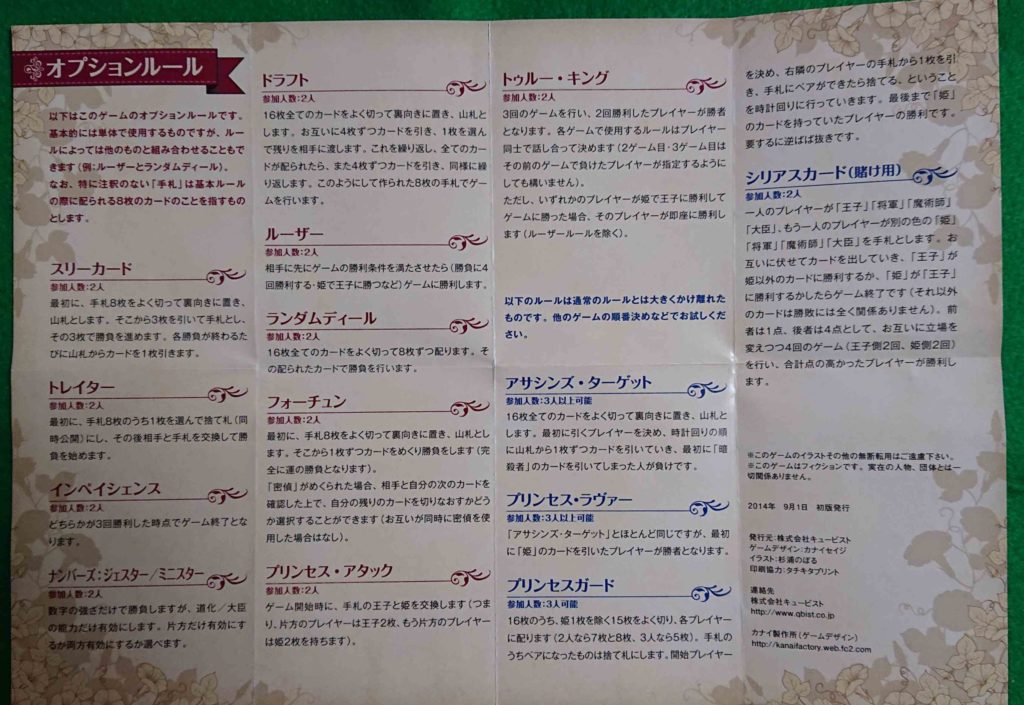 オプションルール
以下はこのゲームのオプションルールです。
基本的には単体で使用するものですが、ルー
ルによっては他のものと組み合わせることもで
きます(例:ルーザーとランダムディール)。
なお、特に注釈のない「手札」は基本ルール
の際に配られる8枚のカードのことを指すもの
とします。
スリーカード
参加人数:2人
最初に、手札8枚をよく切って裏向きに置き、
山札とします。そこから3枚を引いて手札とし、
その3枚で勝負を進めます。各勝負が終わるた
びに山札からカードを1枚引きます。
トレイター
参加人数:2人
最初に、手札8枚のうち1枚を選んで捨て札(同
時公開)にし、その後相手と手札を交換して勝
負を始めます。
インペイシェンス
参加人数:2人
どちらかが3回勝利した時点でゲーム終了とな
ります。
ナンバーズ:ジェスター/ミニスター
参加人数:2人
数字の強さだけで勝負しますが、道化/大臣
の能力だけ有効にします。片方だけ有効にす
るか両方有効にするか選べます。
ドラフト
参加人数:2人
16枚全てのカードをよく切って裏向きに置き、山札と
します。お互いに4枚ずつカードを引き、1枚を選ん
で残りを相手に渡します。これを繰り返し、全てのカー
ドが配られたら、また4枚ずつカードを引き、同様に繰
り返します。このようにして作られた8枚の手札でゲー
ムを行います。
ルーザー
参加人数:2人
相手に先にゲームの勝利条件を満たさせたら(勝負に4
回勝利する・姫で王子に勝つなど)ゲームに勝利します。
ランダムディール
参加人数:2人
16枚全てのカードをよく切って8枚ずつ配ります。そ
の配られたカードで勝負を行います。
フォーチュン
参加人数:2人
最初に、手札8枚をよく切って裏向きに置き、山札としま
す。そこから1枚ずつカードをめくり勝負をします(完
全に運の勝負となります)。
「密偵」がめくられた場合、相手と自分の次のカードを
確認した上で、自分の残りのカードを切りなおすかどう
か選択することができます(お互いが同時に密偵を使
用した場合はなし)。
プリンセス・アタック
参加人数:2人
ゲーム開始時に、手札の王子と姫を交換します(つま
り、片方のプレイヤーは王子2枚、もう片方のプレイヤー
は姫2枚を持ちます)。
トゥルー・キング
参加人数:2人
3回のゲームを行い、2回勝利したプレイヤーが勝者
となります。各ゲームで使用するルールはプレイヤー
同士で話し合って決めます(2ゲーム目・3ゲーム目は
その前のゲームで負けたプレイヤーが指定するように
しても構いません)。
ただし、いずれかのプレイヤーが姫で王子に勝利して
ゲームに勝った場合、そのプレイヤーが即座に勝利し
ます(ルーザールールを除く)。
以下のルールは通常のルールとは大きくかけ離れた
ものです。他のゲームの順番決めなどでお試しくだ
さい。
アサシンズ・ターゲット
参加人数:3人以上可能
16枚全てのカードをよく切って裏向きに置き、山札と
します。最初に引くプレイヤーを決め、時計回りの順
に山札から1枚ずつカードを引いていき、最初に「暗
殺者」のカードを引いてしまった人が負けです。
プリンセス・ラヴァー
参加人数:3人以上可能
「アサシンズ・ターゲット」とほとんど同じですが、最初
に「姫」のカードを引いたプレイヤーが勝者となります。
プリンセスガード
参加人数:3人可能
16枚のうち、姫1枚を除く15枚をよく切り、各プレイヤー
に配ります(2人なら7枚と8枚、3人なら5枚)。手札の
うちペアになったものは捨て札にします。開始プレイヤー
を決め、右隣のプレイヤーの手札から1枚を引
き、手札にペアができたら捨てる、ということ
を時計回りに行っていきます。最後まで「姫」
のカードを持っていたプレイヤーの勝利です。
要するに逆ばば抜きです。
シリアスカード(賭け用)
参加人数:2人
一人のプレイヤーが「王子」「将軍」「魔術師」
「大臣」、もう一人のプレイヤーが別の色の「姫」
「将軍」「魔術師」「大臣」を手札とします。お
互いに伏せてカードを出していき、「王子」が
姫以外のカードに勝利するか、「姫」が「王子」
に勝利するかしたらゲーム終了です(それ以外
のカードは勝敗には全く関係ありません)。前
者は1点、後者は4点として、お互いに立場を
変えつつ4回のゲーム(王子側2回、姫側2回)
を行い、合計点の高かったプレイヤーが勝利し
ます。
※このゲームのイラストその他の無断転用はご遠慮下さい。
※このゲームはフィクションです。実在の人物、団体とは一
切関係ありません。
2014年 9月1日 初版発行
発行元:株式会社キュービスト
ゲームデザイン:カナイセイジ
イラスト:杉浦のぼる
印刷協力:タチキタプリント
連絡先
株式会社キュービスト
http://www.qbist.co.jp
カナイ製作所(ゲームデザイン)
http://kanaifactory.web.fc2.com